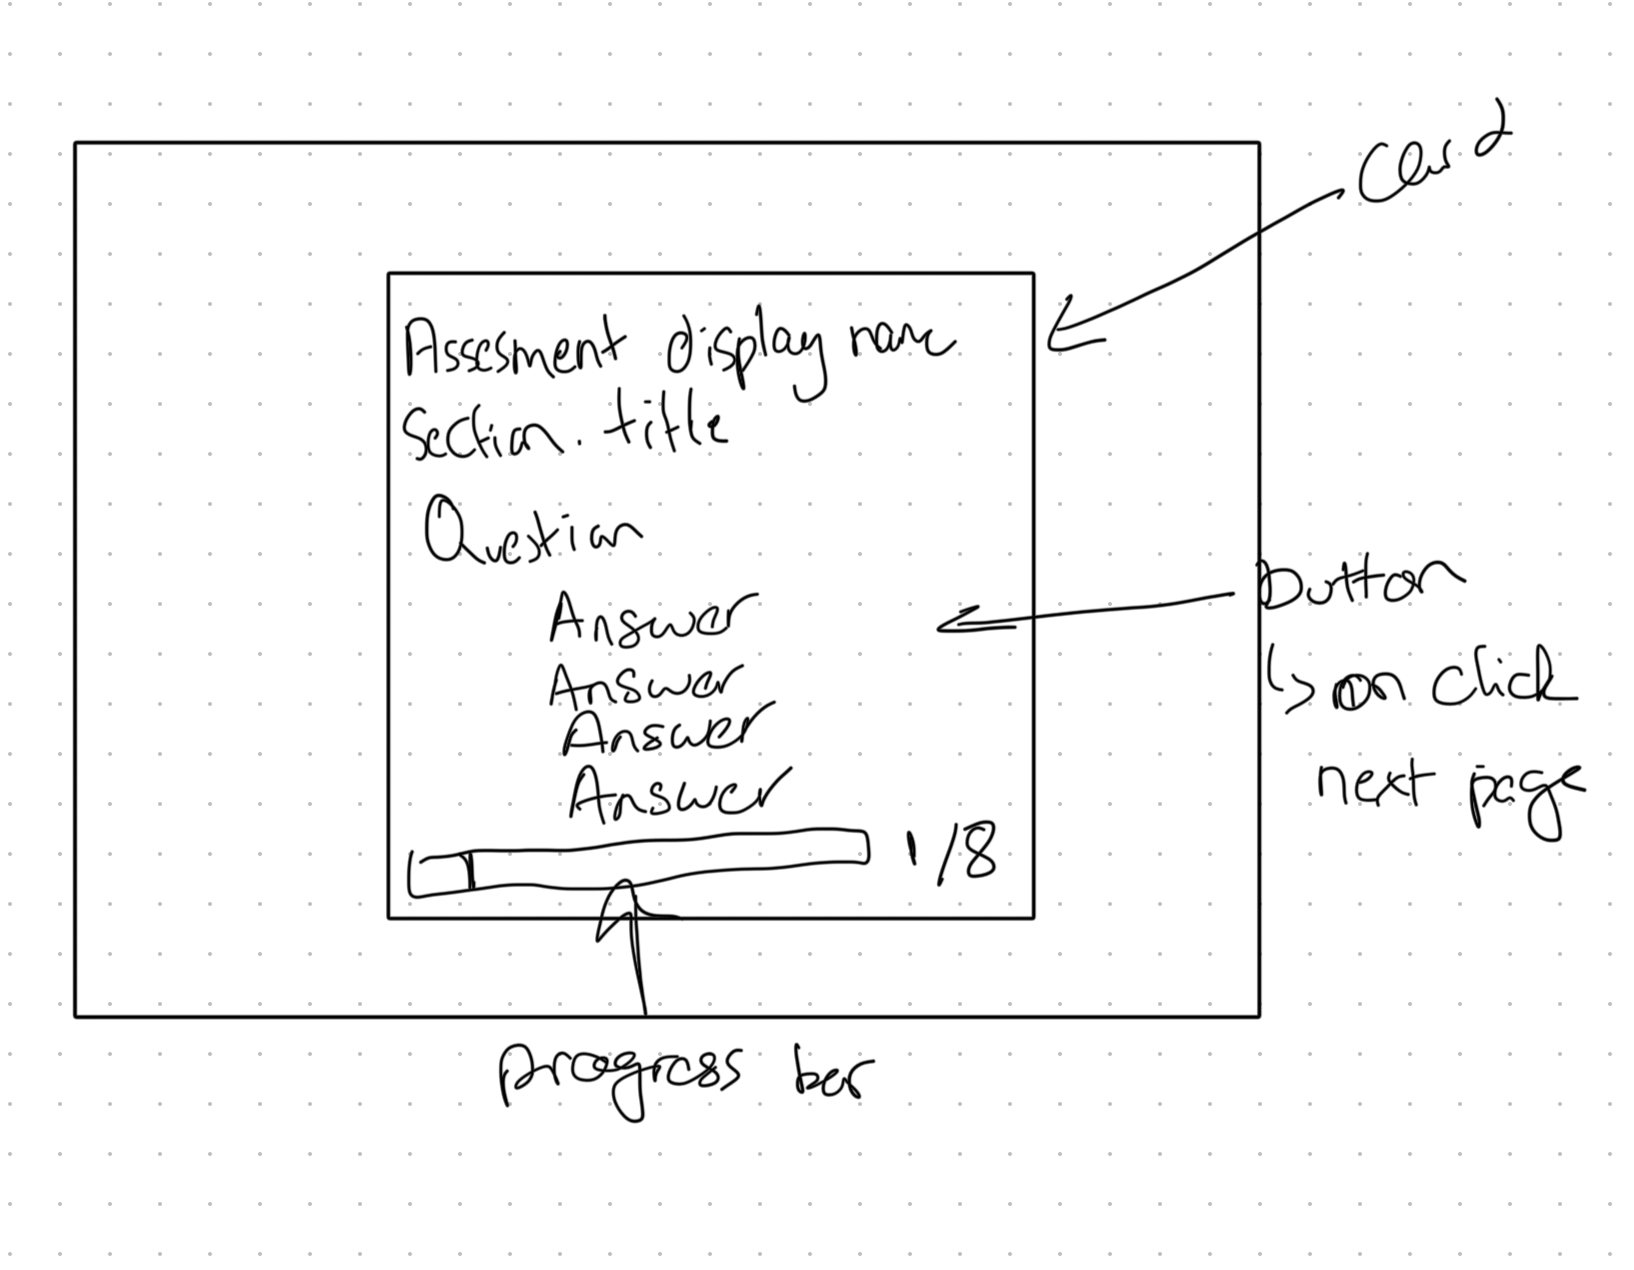 Card
Assesment display name
Section. title
Question
Answer
Answer
Answer
Answer
Button
↳ on click
next page
1/8
progress bar